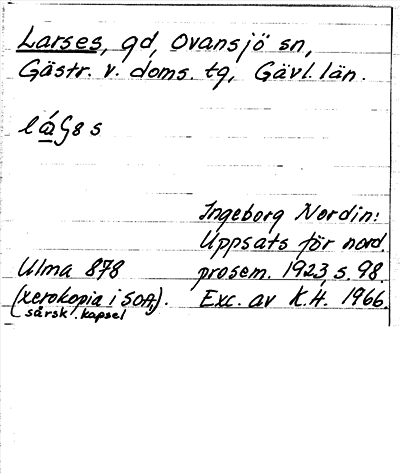 Larses, gd, Ovansjö sn,
Gästr. v. doms. tg, Gävl. län.
Ingeborg Nordin:
Uppsats för nord.
Ulma 878 prosem. 1923, s. 98.
(xerokopia i SOA, särsk. kapsel). Exc. av K.H. 1966.